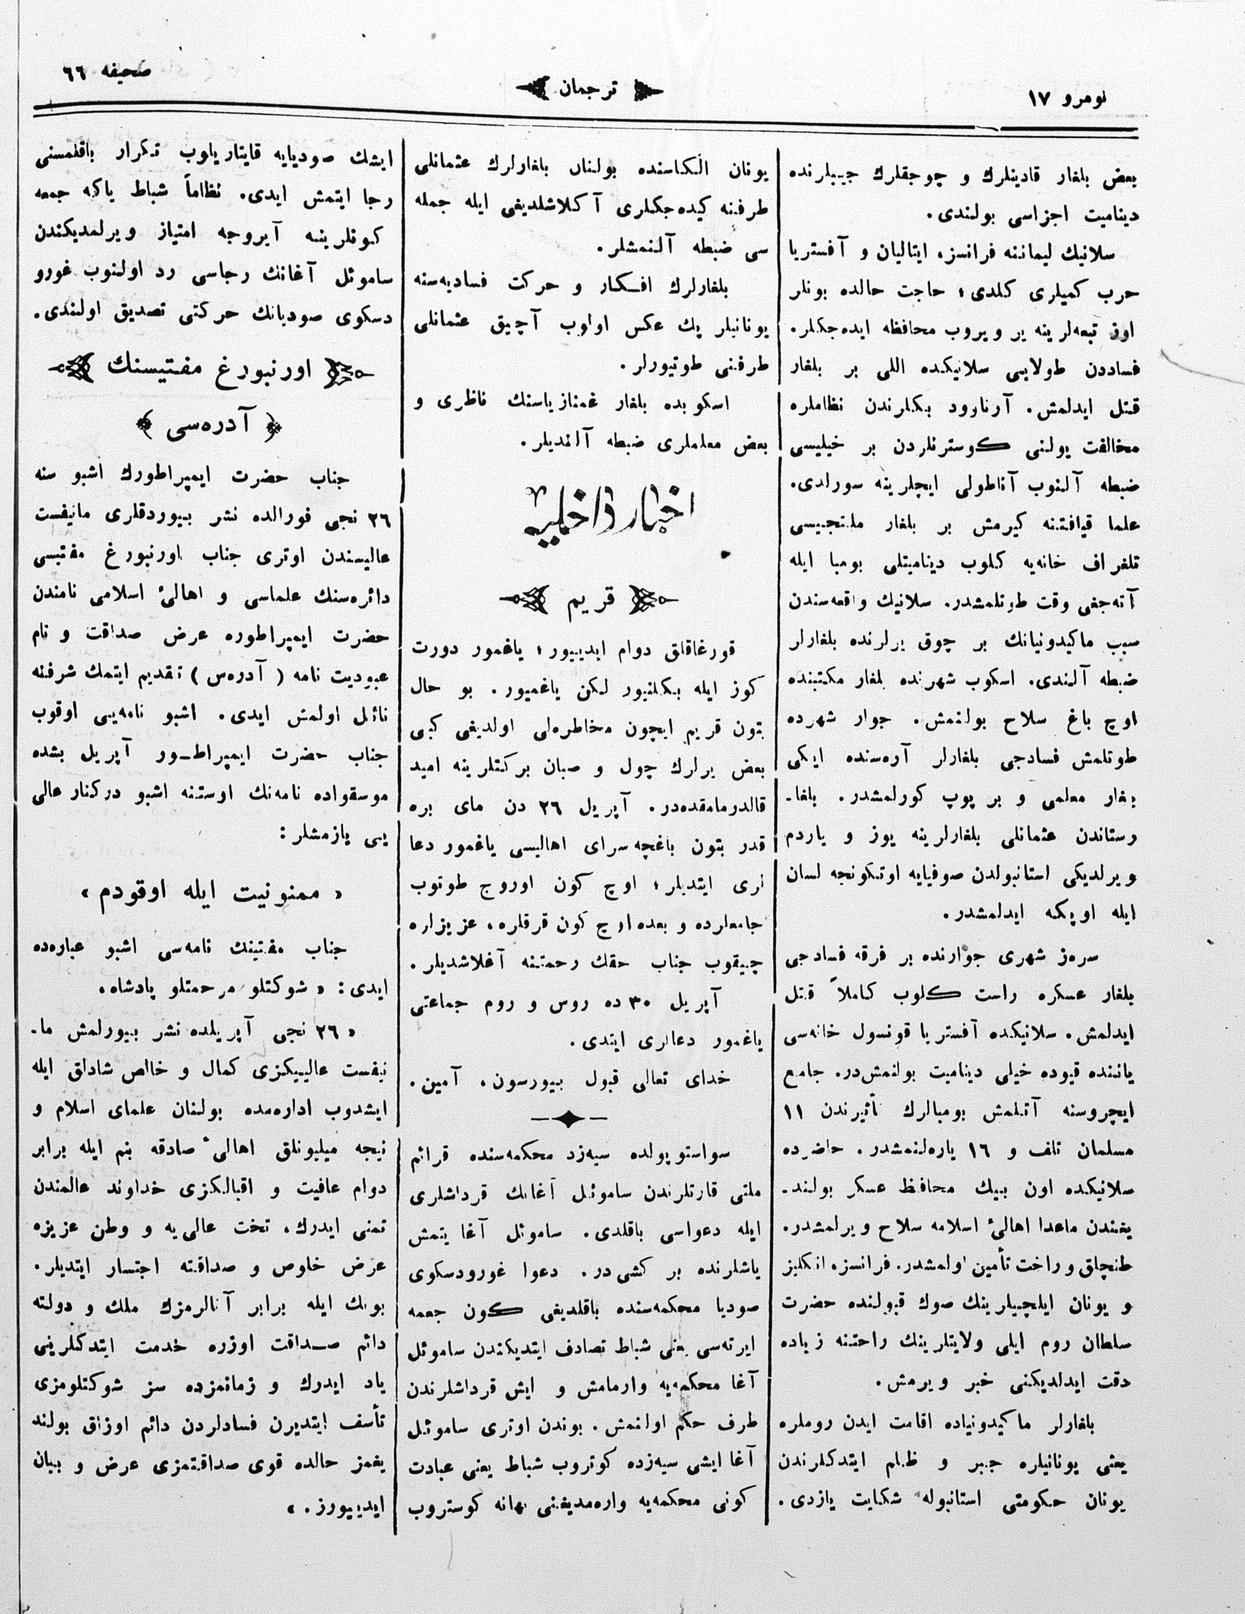 نومرو ١٧
ترجمان
صحیفه ٦٦
بعض بلغار قادینلرك و چوجقلرك جیبلرنده
دینامیت اجزاسی بولندی.
سلانیك لیماننه فرانسز، ایتالیان و آفستریا
حرب كمیلری كلدی؛ حاجت حالده بونلر
اوز تبعه‌لرینه یر ویروب محافظه ایده‌جكلر.
فساددن طولایی سلانیكده اللی بر بلغار
قتل ایدلمش. آرناوود بكلرندن نظاملره
مخالفت یولنی كوسترنلردن بر خیلیسی
ضبطه آلنوب آناطولی ایچلرینه سورلدی.
علما قیافتنه كیرمش بر بلغار ملتجیسی
تلغراف خانه‌یه كلوب دینامیتلی بومبا ایله
آته‌جغی وقت طوتلمشدر. سلانیك واقعه‌سندن
سبب ماكیدونیانك بر چوق یرلرنده بلغارلر
ضبطه آلندی. اسكوب شهرنده بلغار مكتبنده
اوچ باغ سلاح بولنمش. جوار شهرده
طوتلمش فسادجی بلغارلر آره‌سنده ایكی
بلغار معلمی و بر پوپ كورلمشدر. بلغا-
رستاندن عثمانلی بلغارلرینه یوز و یاردم
ویرلدیكی استانبولدن صوفیایه اوتكونجه لسان
ایله اوپكه ایدلمشدر.
سره‌ز شهری جوارنده بر فرقه فسادجی
بلغار عسكره راست كلوب كاملاً قتل
ایدلمش. سلانیكده آفستریا قونسول خانه‌سی
یاننده قیوده خیلی دینامیت بولنمش‌در. جامع
ایچروسنه آتلمش بومبالرك تأثیرندن ١١
مسلمان تلف و ١٦ یاره‌لنمشدر. حاضرده
سلانیكده اون بیك محافظ عسكر بولند-
یغندن ماعدا اهالیٔ اسلامه سلاح ویرلمشدر.
طنچلق و راحت تأمین اولمشدر. فرانسز، انكلیز
و یونان ایلچیلرینك صوك قبولنده حضرت
سلطان روم ایلی ولایتلرینك راحتنه زیاده
دقت ایدلدیكنی خبر ویرمش.
بلغارلر ماكیدونیاده اقامت ایدن روملره
یعنی یونانیلره جبر و ظلم ایتدكلرندن
یونان حكومتی استانبوله شكایت یازدی.
یونان الكاسنده بولنان بلغارلرك عثمانلی
طرفنه كیده‌جكلری آكلاشلدیغی ایله جمله
سی ضبطه آلنمشلر.
بلغارلرك افكار و حركت فسادیه‌سنه
یونانیلر پك عكس اولوب آچیق عثمانلی
طرفنی طوتیورلر.
اسكوبده بلغار غمنازیاسنك ناظری و
بعض معلملری ضبطه آلندیلر.
اخبار داخلیه
قریم
قورغاقلق دوام ایدییور؛ یاغمور دورت
كوز ایله بكلنیور لكن یاغمیور. بو حال
بتون قریم ایچون مخاطره‌لی اولدیغی كبی
بعض یرلرك چول و صبان بركتلرینه امید
قالدرمامقده‌در. آپریل ٢٦ دن مای بره
قدر بتون باغچه‌سرای اهالیسی یاغمور دعا
لری ایتدیلر؛ اوچ كون اوروج طوتوب
جامعلرده و بعده اوچ كون قرقلره، عزیزلره
چیقوب جناب حقك رحمتنه آغلاشدیلر.
آپریل ٣٠ ده روس و روم جماعتی
یاغمور دعالری ایتدی.
خدای تعالی قبول بیورسون، آمین.
سواستوپولده سیه‌زد محكمه‌سنده قرائم
ملتی قارتلرندن ساموئل آغانك قرداشلری
ایله دعواسی باقلدی. ساموئل آغا یتمش
یاشلرنده بر كشی‌در. دعوا غورودسكوی
صودیا محكمه‌سنده باقلدیغی كون جمعه
ایرته‌سی یعنی شباط تصادف ایتدیكندن ساموئل
آغا محكمه‌یه وارمامش و ایش قرداشلرندن
طرف حكم اولنمش. بوندن اوتری ساموئل
آغا ایشی سیه‌زده كوتروب شباط یعنی عبادت
كونی محكمه‌یه واره‌مدیغنی بهانه كوستروب
ایشك صودیایه قایتاریلوب تكرار باقلمسنی
رجا ایتمش ایدی. نظاماً شباط یاكه جمعه
كونلرینه آیروجه امتیاز ویرلمدیكندن
ساموئل آغانك رجاسی رد اولنوب غورو
دسكوی صودیانك حركتی تصدیق اولندی.
اورنبورغ مفتیسنك
آدره‌سی
جناب حضرت ایمپراطورك اشبو سنه
٢٦ نجی فورالده نشر بیوردقلری مانیفست
عالیسندن اوتری جناب اورنبورغ مفتیسی
دائره‌سنك علماسی و اهالیٔ اسلامی نامندن
حضرت ایمپراطوره عرض صداقت و نام
عبودیت نامه ( آدره‌س ) تقدیم ایتمك شرفنه
نائل اولمش ایدی. اشبو نامه‌یی اوقوب
جناب حضرت ایمپراطور آپریل بشده
موسقواده نامه‌نك اوستنه اشبو دركنار عالی
یی یازمشلر:
« ممنونیت ایله اوقودم »
جناب مفتینك نامه‌سی اشبو عباره‌ده
ایدی: « شوكتلو مرحمتلو پادشاه.
« ٢٦ نجی آپریلده نشر بیورلمش ما-
نیفست عالییكزی كمال و خالص شادلق ایله
ایشدوب اداره‌مده بولنان علمای اسلام و
نیجه میلیونلق اهالیٔ صادقه بنم ایله برابر
دوام عافیت و اقبالكزی خداوند عالمدن
تمنی ایدرك، تخت عالی‌یه و وطن عزیزه
عرض خلوص و صداقته اجتسار ایتدیلر.
بونك ایله برابر آتالرمزك ملك و دولته
دائم صداقت اوزره خدمت ایتدكلرینی
یاد ایدرك و زمانمزده سز شوكتلومزی
تأسف ایتدیرن فسادلردن دائم اوزاق بولند
یغمز حالده قوی صداقتمزی عرض و بیان
ایدییورز. »